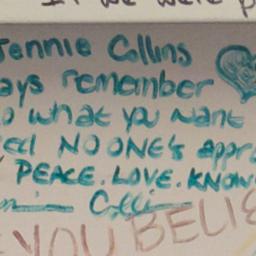 If we were p
Jennie Collins
ays remember
o what you want
NO ONE'S appr
PEACE. LOVE. KNOW
Colli
YOU BELIE